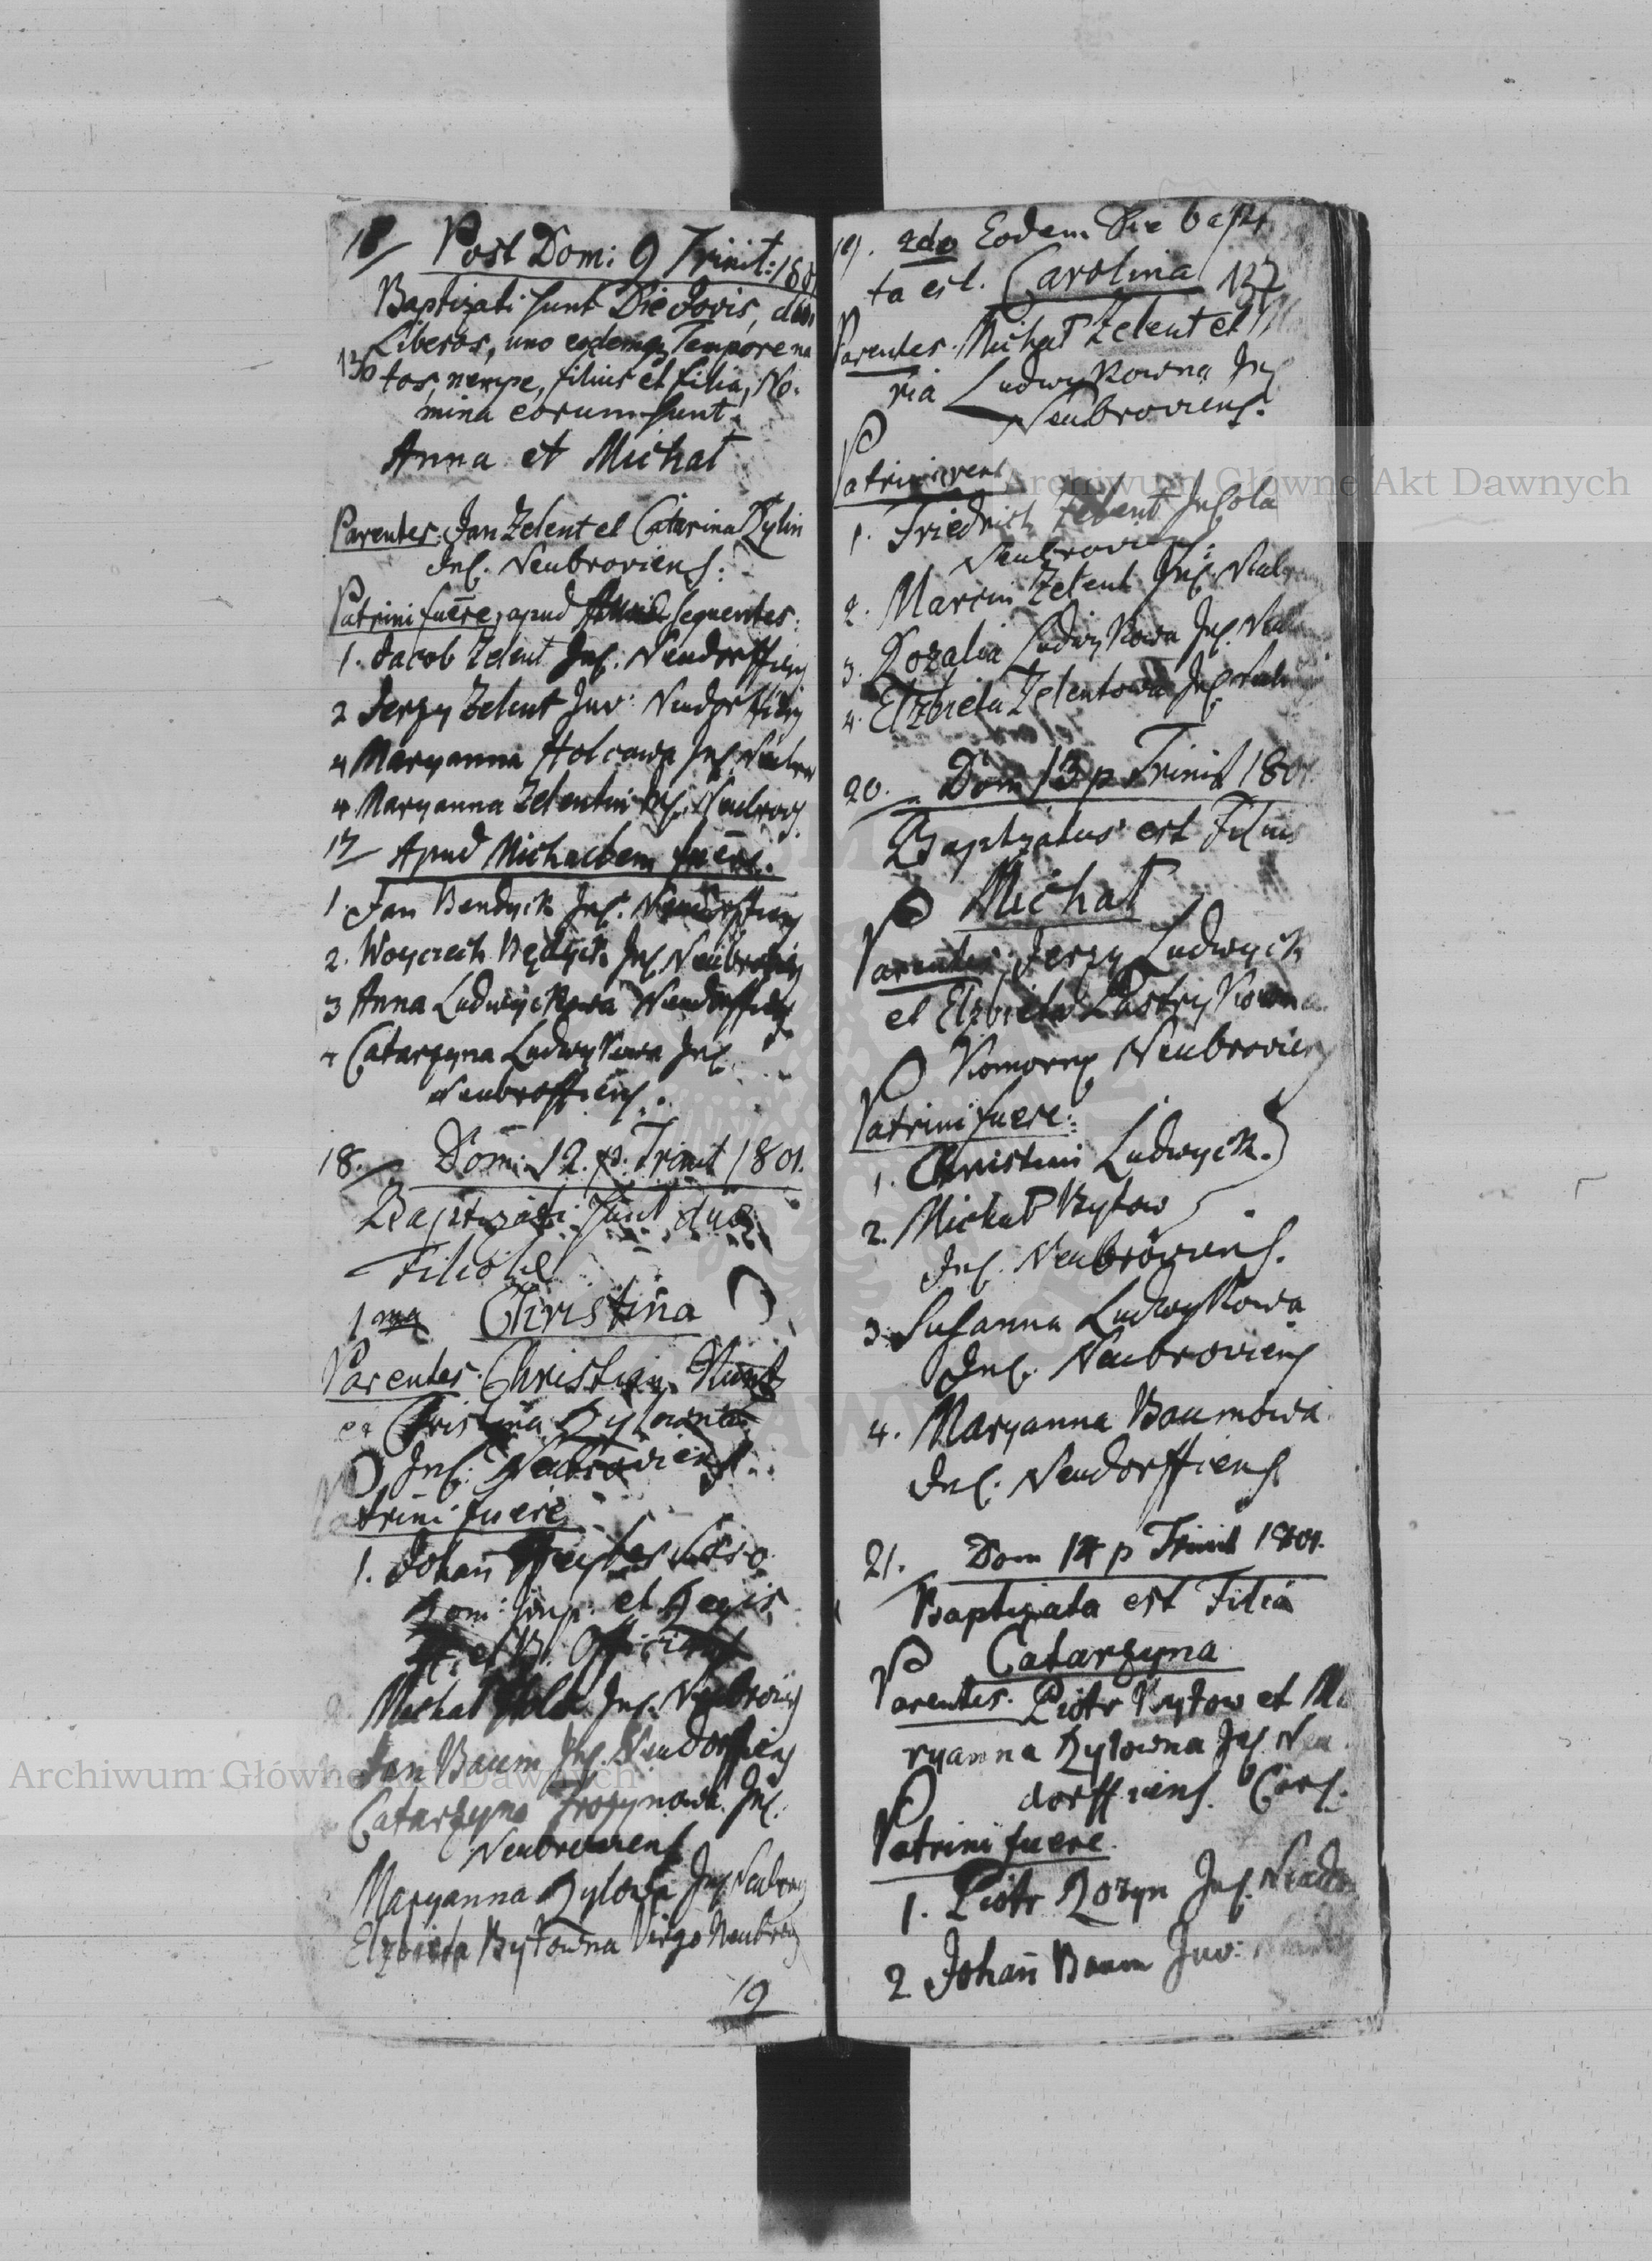 18 Post Dom: 9 Trinit: 180
Baptizati sunt Die Jovis, duo
Liberos, uno eodemq Tempore na
136 tos, nempe, filius et filia, No-
mina eorum sunt
Anna et Michał
Parentes: Jan Zelent et Catarina Rylin
Ins. Neubroviens:
Patrini fuere, apud sequentes:
1. Jacob Zelent Ins: Neudorffiens
2 Jerzy Zelent Juv: Neudorffiens
4 Maryanna Holcowa Ins Neubro
4 Maryanna Zelentin Ins. Neubrov
17 Apud Michaelem fuere.
1. Jan Bendyck Ins: Neudorffiens
2. Woyciech Będyck Ins Neubroviens
3 Anna Ludwyckowa Neudorffiens
4 Catarzyna Ludwykowa Ins
Neubroffiens.
18. Dom: 12. p. Trinit 1801.
Baptizati sunt duo
Filiolae
1ma Christina
Parentes. Christian Kuntz
et Christina Rylowna
Ins: Neubroviens.
Patrini fuere
1. Johan
Rom: Imp: et Regis
et B.
Michał Holc Ins. Neubrovs
Jan Baum Ins. Neudorffiens
Catarzyna Ins.
Neubroviens
Maryanna Rylowa Ins Neubrov
Elzbieta Bytowna Virgo Neubrov
19
19. 2do Eodem Die bapti
ta est. Carolina 137
Parentes. Michał Zelent et
ria Ludwykowna Ins
Neubroviens.
Patrini
1. Friedrich Zelent Insola
Neubroviens:
2. Marcin Zelent Ins. Neubro
3. Rozalia Ludwykowa Ins. Neu
4. Elzbieta Zelentowa Ins
20. Dom 13 p Trinit 1801
Baptyzatus est Filius
Michał
Parentes, Jerzy Ludwyck
et Elzbieta
Komorns Neubroviens
Patrini fuere:
1. Christian Ludwyck.
2. Michał Bytow
Ins. Neubroviens.
3. Susanna Ludwykowa
Ins. Neubroviens
4. Maryanna Baumowa
Ins. Neudorffiens.
21. Dom 14 p Trinit 1801.
Baptizata est Filia
Catarzyna
Parentes. Piotr Bytow et Ma
ryanna Rylowna Ins. Neu
dorffiens.
Patrini fuere.
1. Piotr Rozyn Ins. Neudor
2 Johañ Baum Juv:
Archiwum Główne Akt Dawnych
Archiwum Główne Akt Dawnych